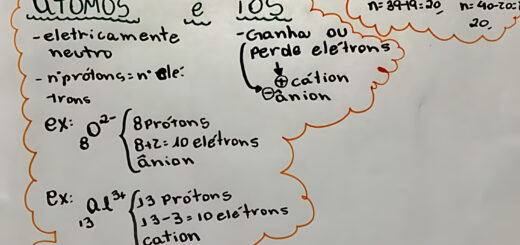 átomos e íos
-eletricamente
neutro
-Ganha ou
perde elétrons
⊕ cátion
⊖ ânion
-nºprótons=nº elé-
trons
ex: ₈O²⁻
8 Prótons
8+2=10 elétrons
ânion
ex: ₁₃Al³⁺
13 Prótons
13-3=10 elétrons
cation
n=39-19=20
n=40-20=
20